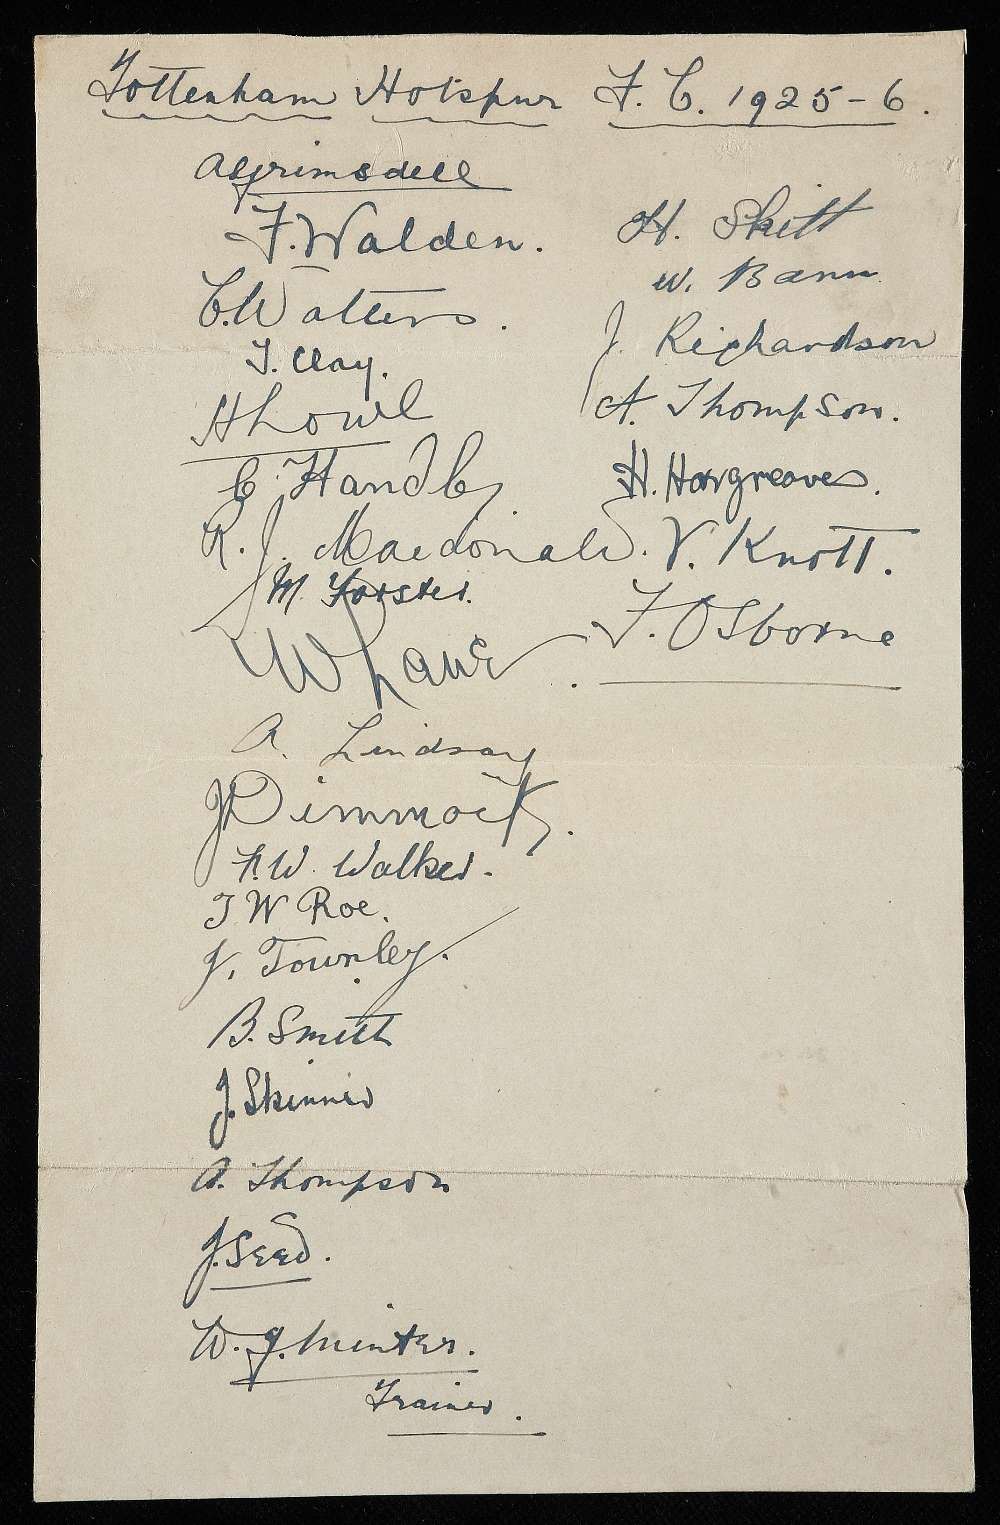 Tottenham Hotspur F.C. 1925-6.
A Grimsdell
F. Walden.
C. Walters.
T. Clay.
H Lowe
C. Handley
R. J. Macdonald.
M. Forster.
W Lane.
A. Lindsay
J Dimmock.
R.W. Walker.
T W Roe.
J. Townley.
B. Smith
J. Skinner
A. Thompson
J. Seed.
W. J. Minter.
Trainer.
H. Skitt
W. Bann
J. Richardson
A. Thompson.
H. Hargreaves.
V. Knott.
F. Osborne